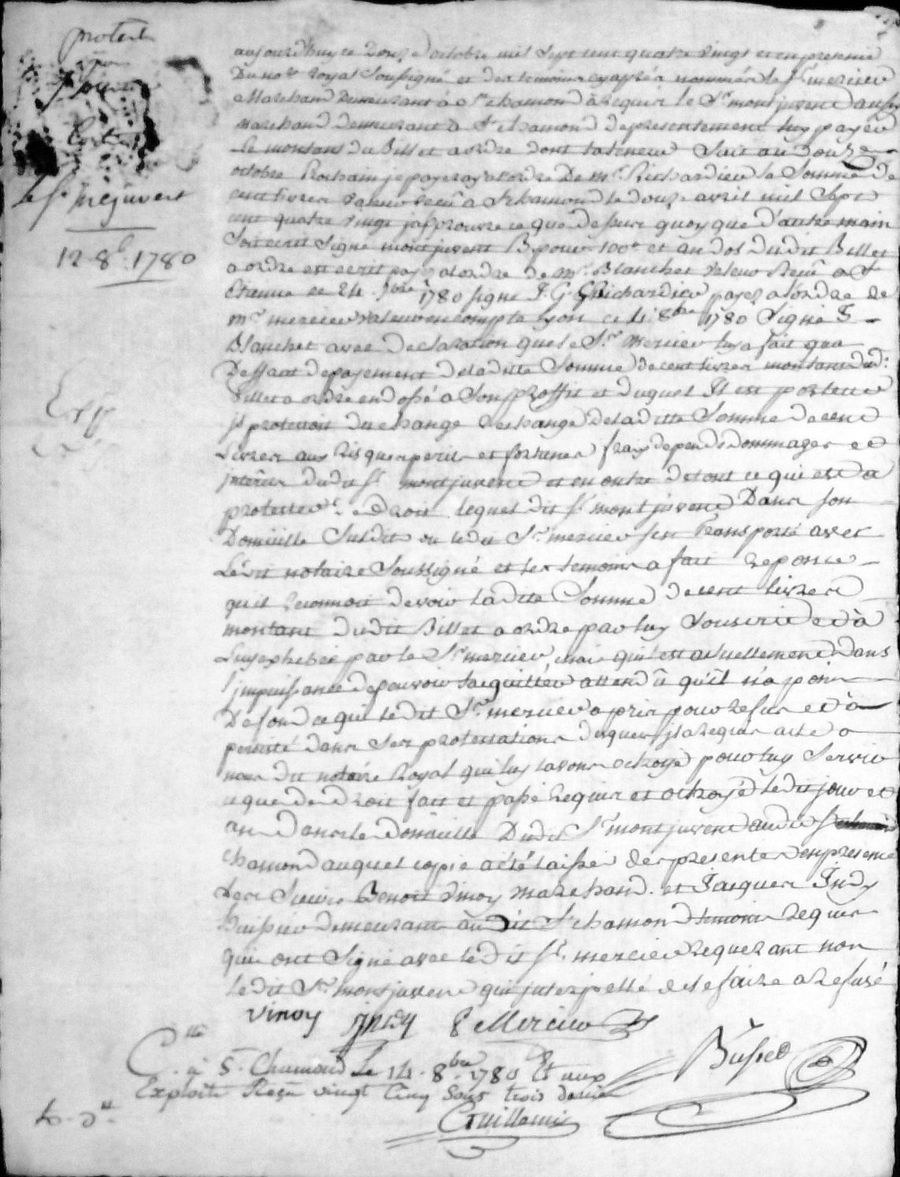 protest
pour
le Sr
le Sr mojuvent
12 8b. 1780
Exp
aujourdhuy ce Douze octobre mil sept cent quatre vingt et en presence
Du nore royal soussigné et des temoins cy aprés nommés le Sr mercier
Marchand demeurant à St chamond à requis le Sr montjuvent aussy
marchand demeurant a St chamond de presentement luy payer
Le montant du Billet a ordre dont la teneur suit au Douze
octobre Prochain je payeray a lordre De Mr Richardier la somme de
cent livres valeur recuë a St chamond le douze avril mil sept
cent quatre vingt japprouve ce que dessus quoy que d'autre main
soit ecrit signé montjuvent B. pour 100# et au dos dudit Billet
a ordre est ecrit payez a lordre de Mr Blanchet valeur Recuë a St
Etienne ce 24. 7bre 1780 signé J. G. Richardier payez a lordre de
Mr mercier valeur en compte Lyon ce 4. 8bre 1780 signé F
Blanchet avec declaration que le Sr mercier luy a fait que
Deffaut de payement de ladite somme de cent livres montant dud:
Billet a ordre endossé a son proffit et duquel Il est porteur
jl protestoit du change rechange de ladite somme de cent
Livres aux risques perils et fortunes frais depends dommages et
jnterets dudit Sr montjuvent et en outre de tout ce qui est a
protester de droit lequel dit Sr montjuvent Dans son
Domicille susdit ou ledit Sr mercier sen transporté avec
Ledit notaire soussigné et les temoins a fait reponce
quil reconnoit devoir ladite somme de cent livres
montant dudit Billet a ordre par luy souscrit et à
Luy exhibé par le Sr mercier, mais quil est actuellement dans
l'jmpuissance de pouvoir lacquitter attendû qu'il n'a point
De fond ce que ledit Sr mercier a pris pour refus et à
persisté dans ses protestations desquels jl a requis acte a
nous dit notaire Royal qui luy lavons octroyé pour luy servir
a que de droit fait et passé requis et octroyé ledit jour et
an dans le domicille Dudit Sr montjuvent audit St
chamond auquel copie a été laissé des presentes en presence
des Sieurs Benoit Vinoy marchand et Jacques Indy
huissier demeurant audit St chamond temoins requis
qui ont signé avec ledit Sr mercier requerant non
Ledit Sr montjuvent qui jnterpellé de le faire a refusé
Vinoy jndy Mercier
Cllé à St Chamond Le 14. 8bre 1780 Et aux
Exploits Reçu vingt cinq sous trois denier
Guillemin